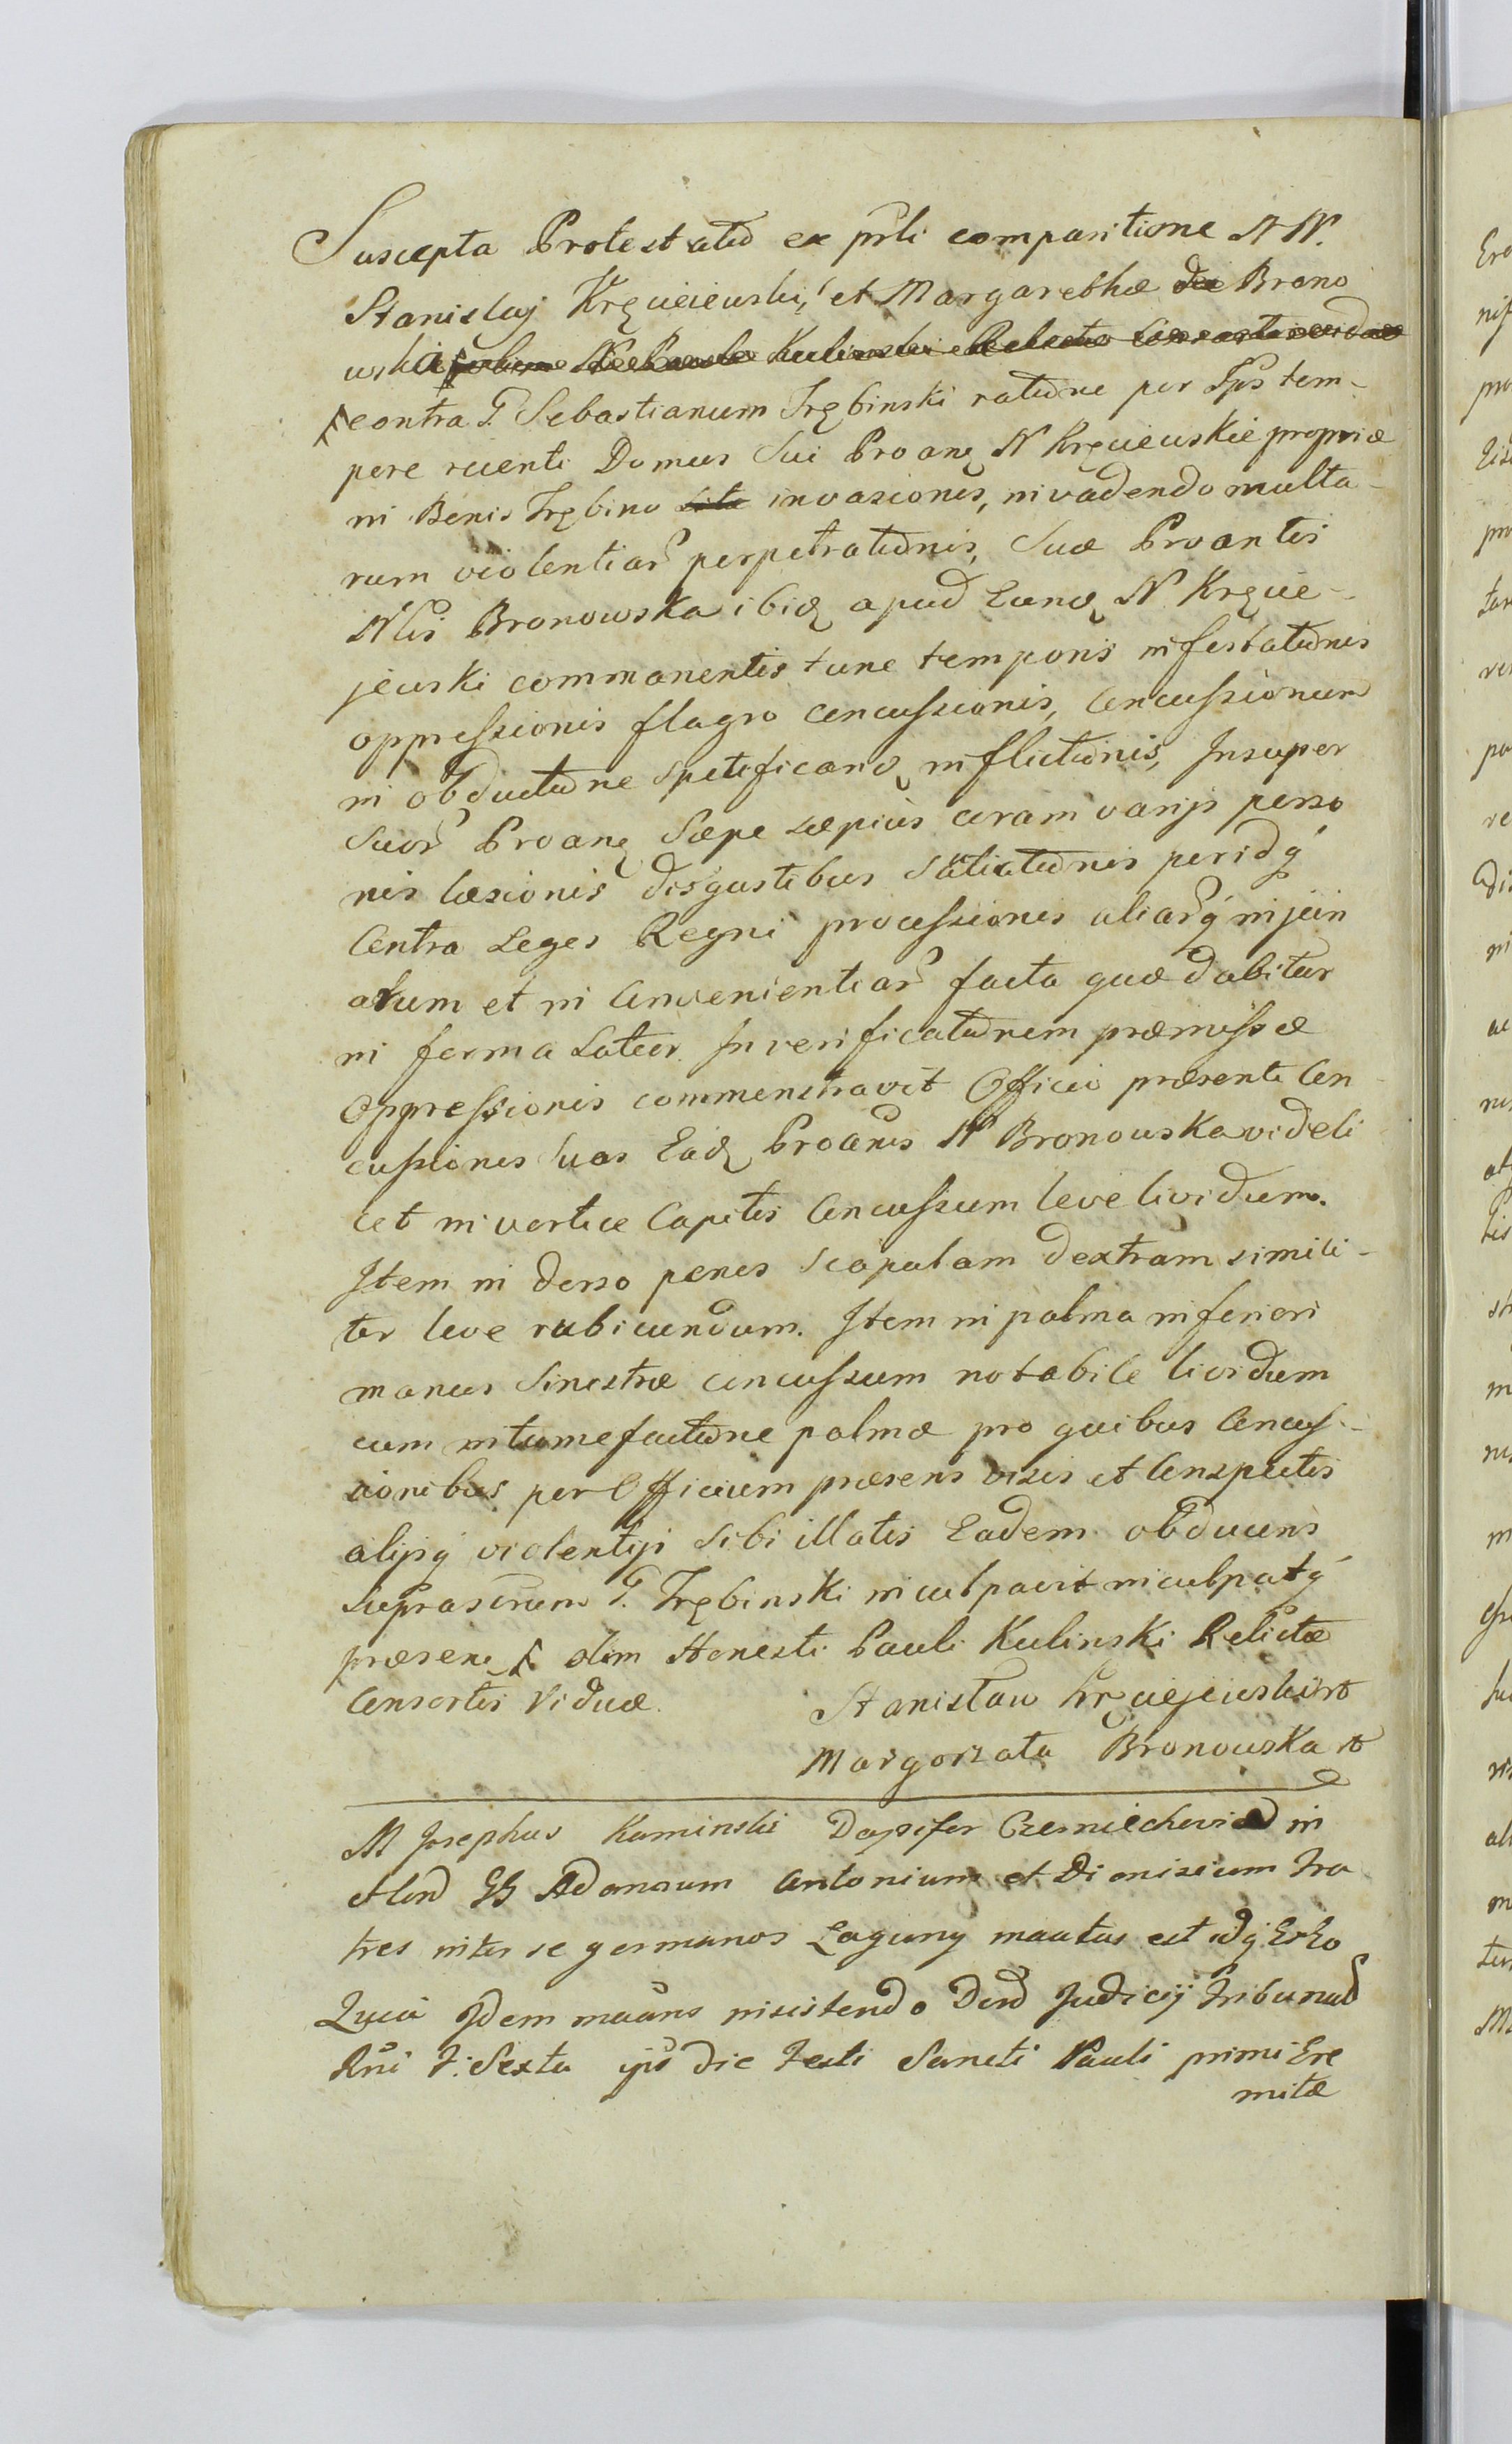 Suscepta Protestatio ex prsti comparitione NN.
Stanislaj Kręciejewski, et Margarethæ de Brono
wska olim Hti Pauli Kulinski Relicta Consortis viduæ
contra G. Sebastianum Trębinski ratione per Ips tem-
pere recenti Domus Sui Proanq N Kręciewskie propriæ
in Benis Trębino sita invasiones, invadendo multa-
rum violentiar perpetrationis, Suæ Proantis
Nlis Bronowska ibiq apud Eundq N Kręcie-
jewski commanentis tunc temporis infestationis
oppressionis flagro concussionis, Concussionum
in obductione spetificanq inflictionis, Insuper
Suor Proanq Sæpe sæpius coram varijs perso
nis læsionis disgustibus satiationis peridq
Contra Leges Regni processionis aliarq injuin
arum et in Convenientiar facta quæ dabitur
in forma Latior. In verificationem præmissæ
Oppressionis commonstravit Officio præsenti Con
cussiones suas Eadq Proanis N Bronowska videli
cet in vertice Capitis Concussum leve lividum.
Item in dorso penes Scapulam dextram simili-
ter leve rubicundum. Item in palma inferiori
manus Sinistræ concussum notabile lividum
cum intumefactione palmæ pro quibus Concus-
sionibus per Officium præsens visis et Conspectis
alijsq violentijs sibi illatis Eadem obducens
Suprascrum G. Trębinski inculpavit inculpatq
præsenq olim Honesti Pauli Kulinski Relictæ
Consortis Viduæ. Stanisław Kręciejewski
Margorzata Bronowska
M Josephus Kaminski Dapifer Czerniechovien in
et Cond GG Adamum Antonium et Dionisium Fra
tres inter se germanos Łaguny
Quia Idem insistendo Judicij Tribunal
Rni F. Sexta ips die Festi Sancti Pauli primi Ere
mitæ